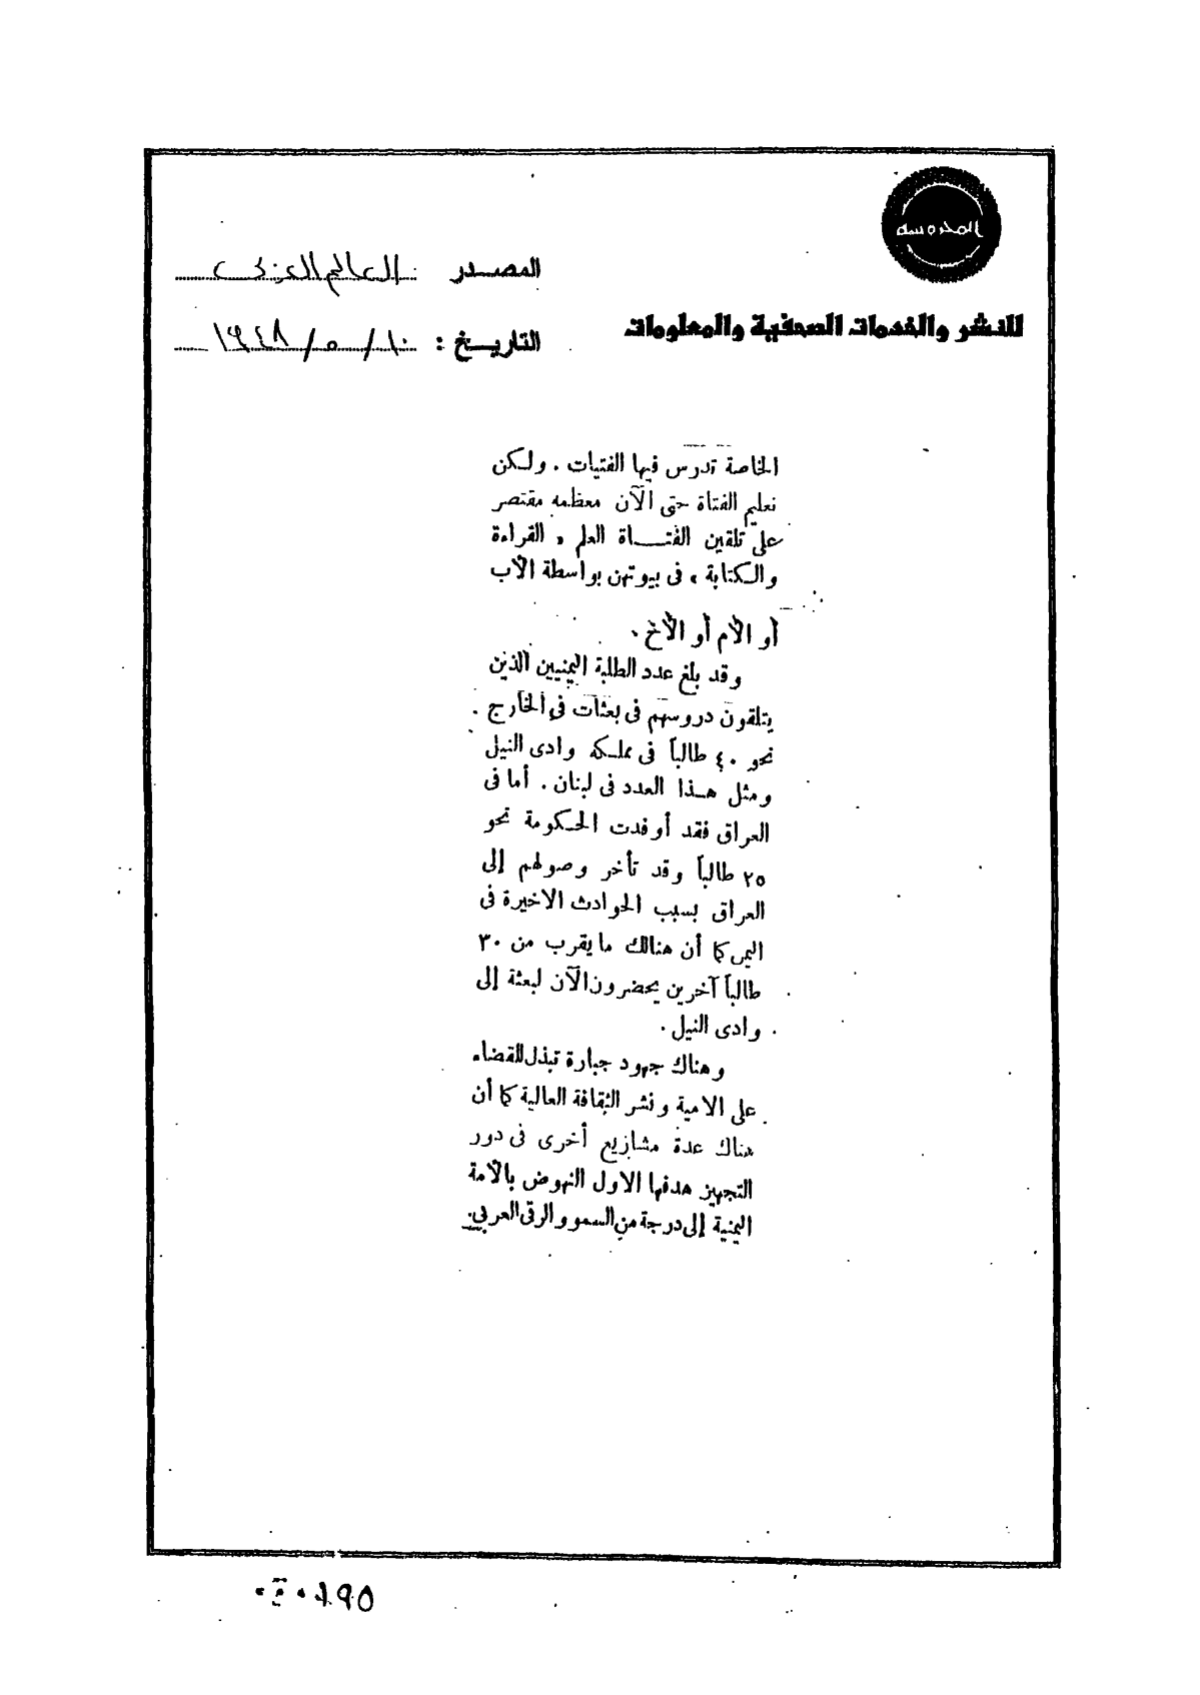 المحروسه
للنشر والخدمات الصحفية والمعلومات
المصدر : العالم العربى
التاريخ : ١٠/ ٥ / ١٩٤٨
الخاصة تدرس فيها الفتيات . ولكن
تعليم الفتاة حتى الآن معظمه مقتصر
على تلقين الفتاة العلم « القراءة
والكتابة » فى بيوتهن بواسطة الأب
أو الأم أو الأخ .
وقد بلغ عدد الطلبة اليمنيين الذين
يتلقون دروسهم فى بعثات فى الخارج .
نحو ٤٠ طالباً فى مملكة وادى النيل
ومثل هذا العدد فى لبنان . أما فى
العراق فقد أوفدت الحكومة نحو
٢٥ طالباً وقد تأخر وصولهم إلى
العراق بسبب الحوادث الاخيرة فى
اليمن كما أن هنالك ما يقرب من ٣٠
طالباً آخرين يحضرون الآن لبعثة إلى
وادى النيل .
وهناك جهود جبارة تبذل للقضاء
على الامية ونشر الثقافة العالية كما أن
هناك عدة مشاريع أخرى فى دور
التجهيز هدفها الاول النهوض بالأمة
اليمنية إلى درجة من السمو والرقى العربي.